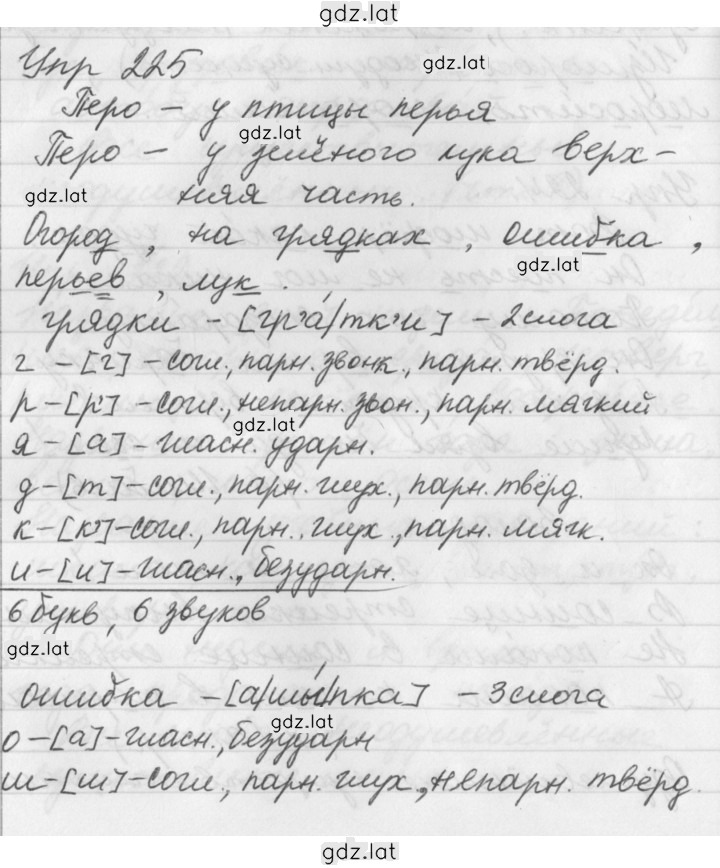 gdz.lat
Упр 225
gdz.lat
Перо – у птицы перья
gdz.lat
Перо – у зелёного лука верх-
gdz.lat
няя часть.
Огород, на грядках, ошибка,
gdz.lat
перьев, лук.
грядки – [гр'а́/тк'и] – 2 слога
г – [г] – согл., парн. звонк., парн. твёрд.
р – [р'] – согл., непарн. звон., парн. мягкий
gdz.lat
я – [а] – гласн. ударн.
д – [т] – согл., парн. глух., парн. твёрд.
к – [к'] – согл., парн. глух., парн. мягк.
и – [и] – гласн., безударн.
6 букв, 6 звуков
gdz.lat
ошибка – [а/шы́/пка] – 3 слога
gdz.lat
о – [а] – гласн., безударн
ш – [ш] – согл., парн. глух., непарн. твёрд.
gdz.lat